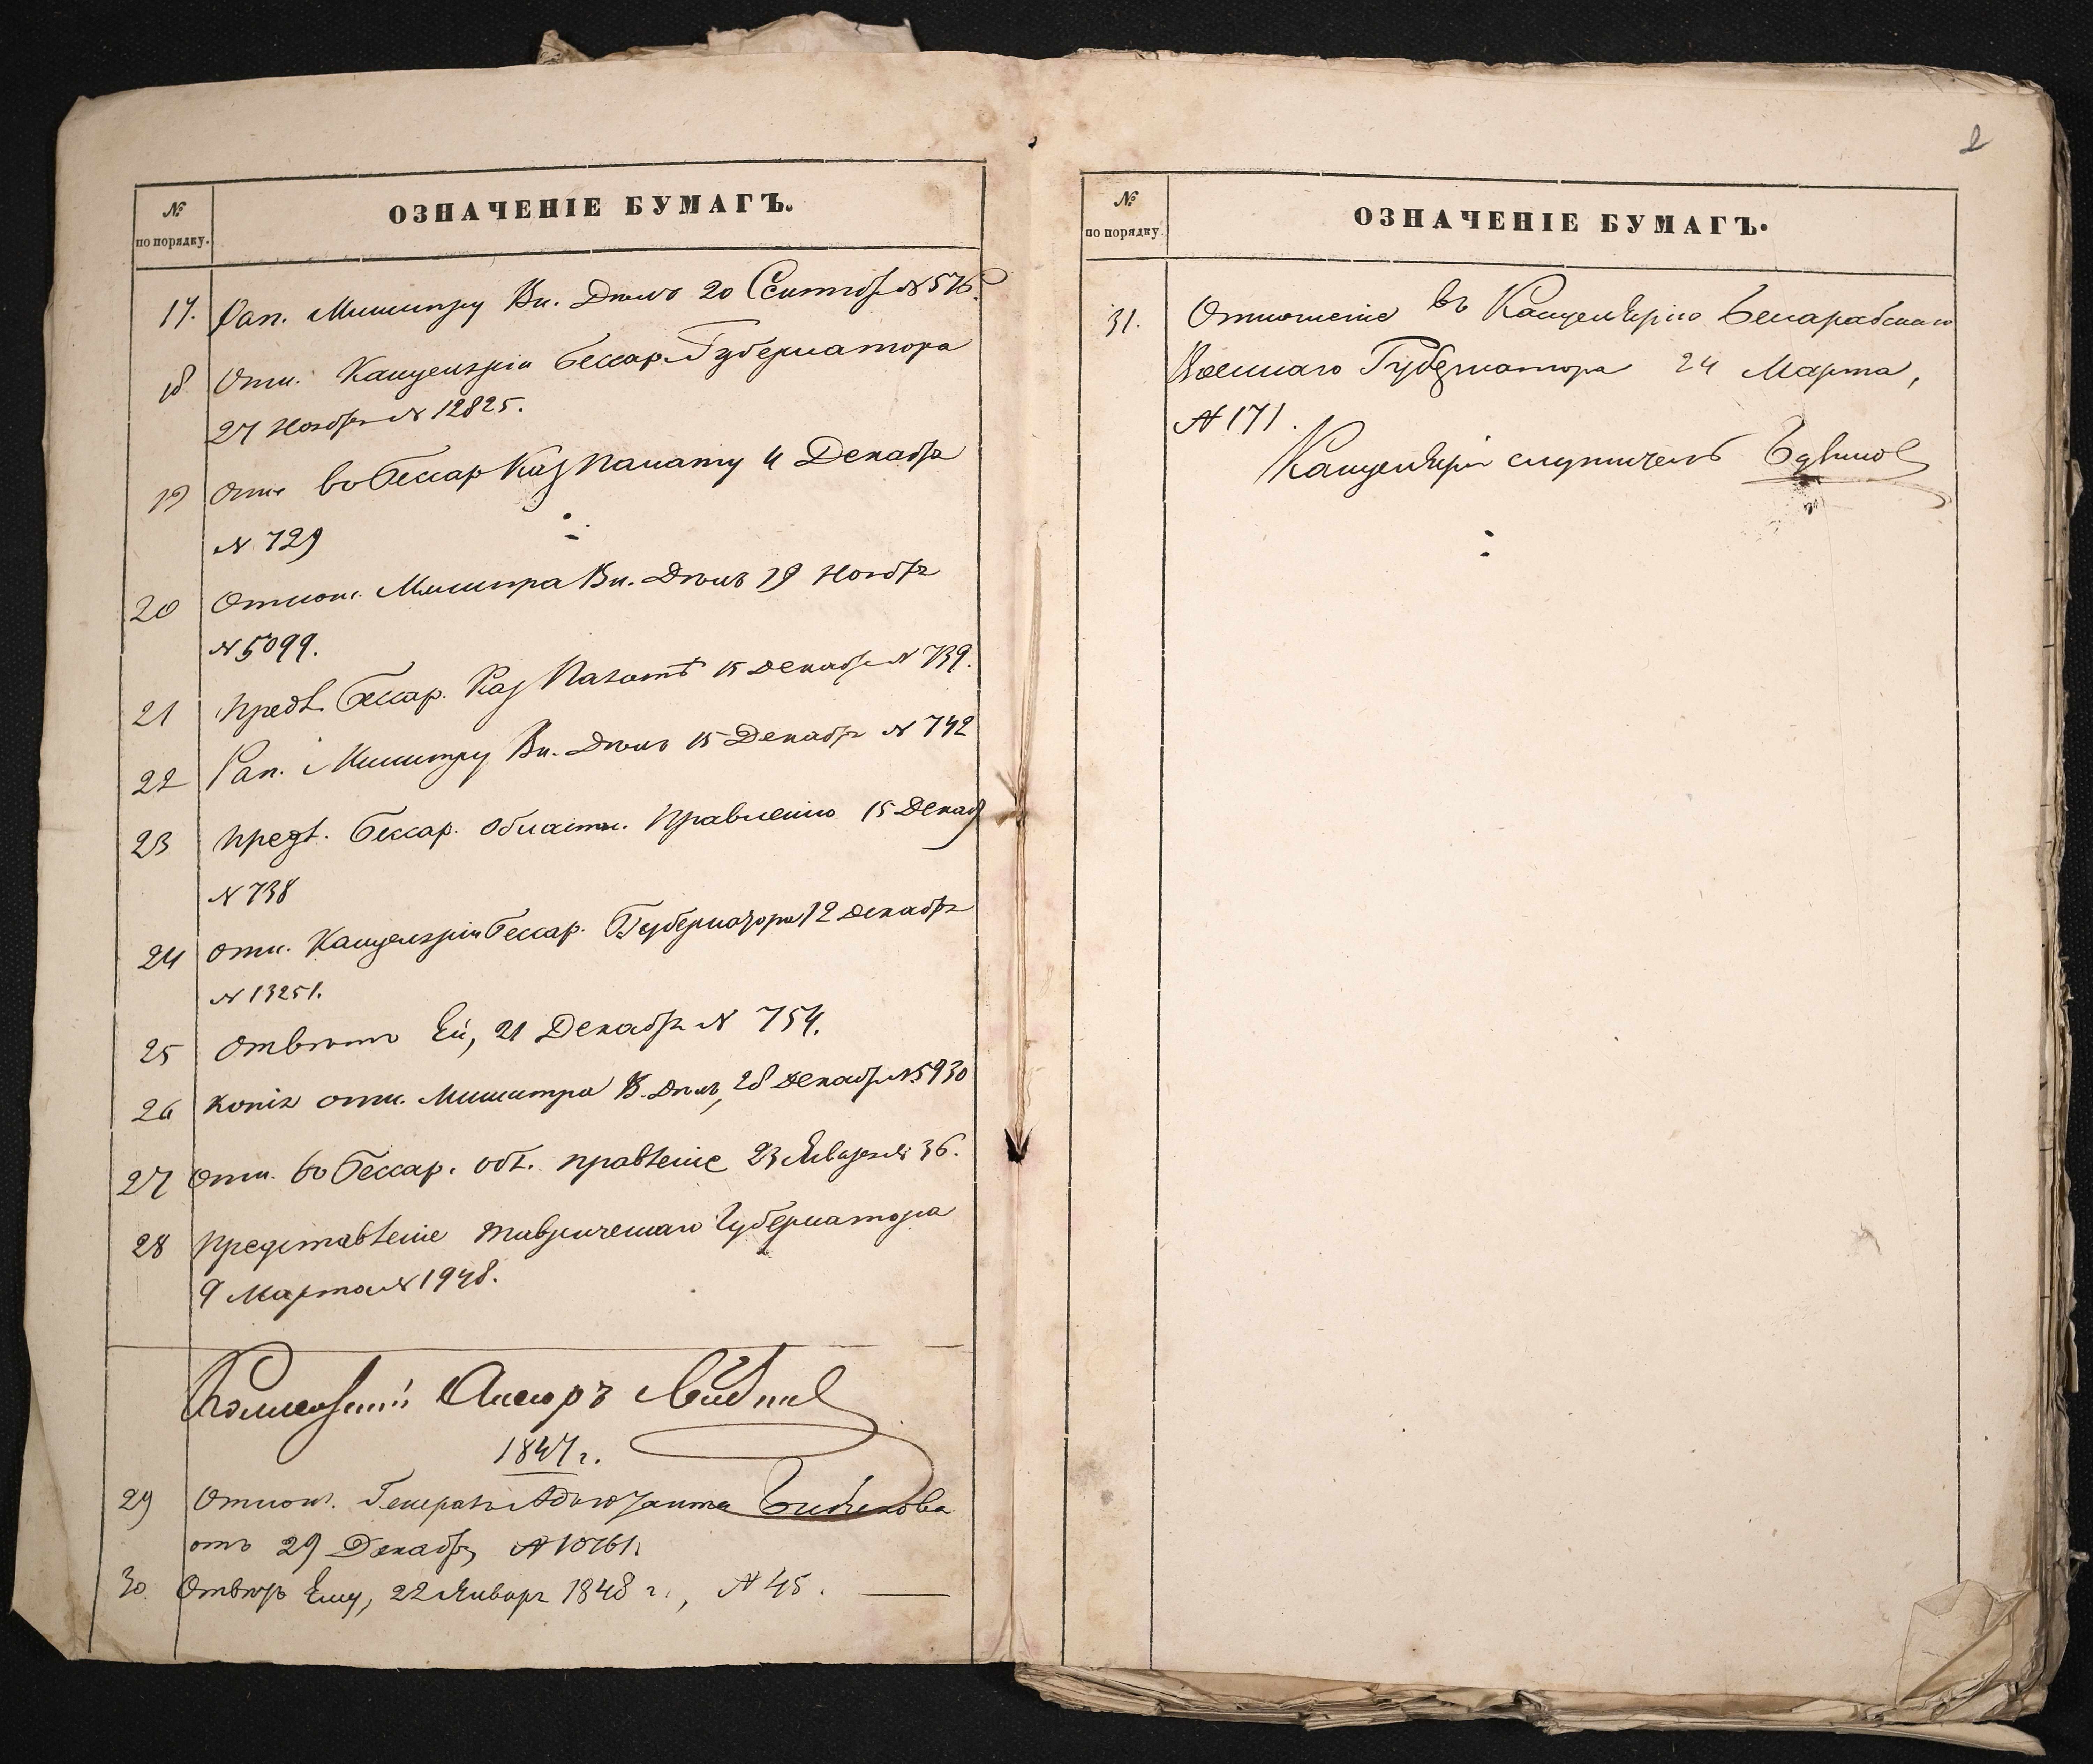 №
по порядку.
ОЗНАЧЕНІЕ БУМАГЪ.
17. Рап. Министру Вн. Дѣлъ 20 Сентябр №
18 Отн. Канцеляріи Бессар. Губернатора
27 Ноября № 12825.
19 Отн. въ Бессар Каз Палату 4 Декабря
№ 729
20 Отнош. Министра Вн. Дѣлъ 19 Ноябр
№ 5099.
21 Предл. Бессар. Каз Палатѣ 15 Декабр № 739.
22 Рап. Министру Вн. Дѣлъ 15 Декабр № 742
23 Предл. Бессар. Областн. Правленію 15 Декаб
№ 738
24 Отн. Канцеляріи Бессар. Губернатора 12 Декабр
№ 13251.
25 Отвѣтъ Ей, 21 Декабр № 754.
26 Копія отн. Министра В. Дѣлъ, 28 Декабр № 5930
27 Отн. въ Бессар. обл. правленіе 23 Января № 36.
28 Представленіе Таврическаго Губернатора
9 Марта № 1948.
Ассесоръ
1847 г.
29 Отнош. Генералъ Адъютанта Бибикова
отъ 29 Декабр,
30. Отвѣтъ Ему, 22 Январ 1848 г., № 45.
2
№
по порядку.
ОЗНАЧЕНІЕ БУМАГЪ.
31. Отношеніе въ Канцелярію Бессарабскаго
Военнаго Губернатора 24 Марта,
№ 171.
Канцелярскій служитель